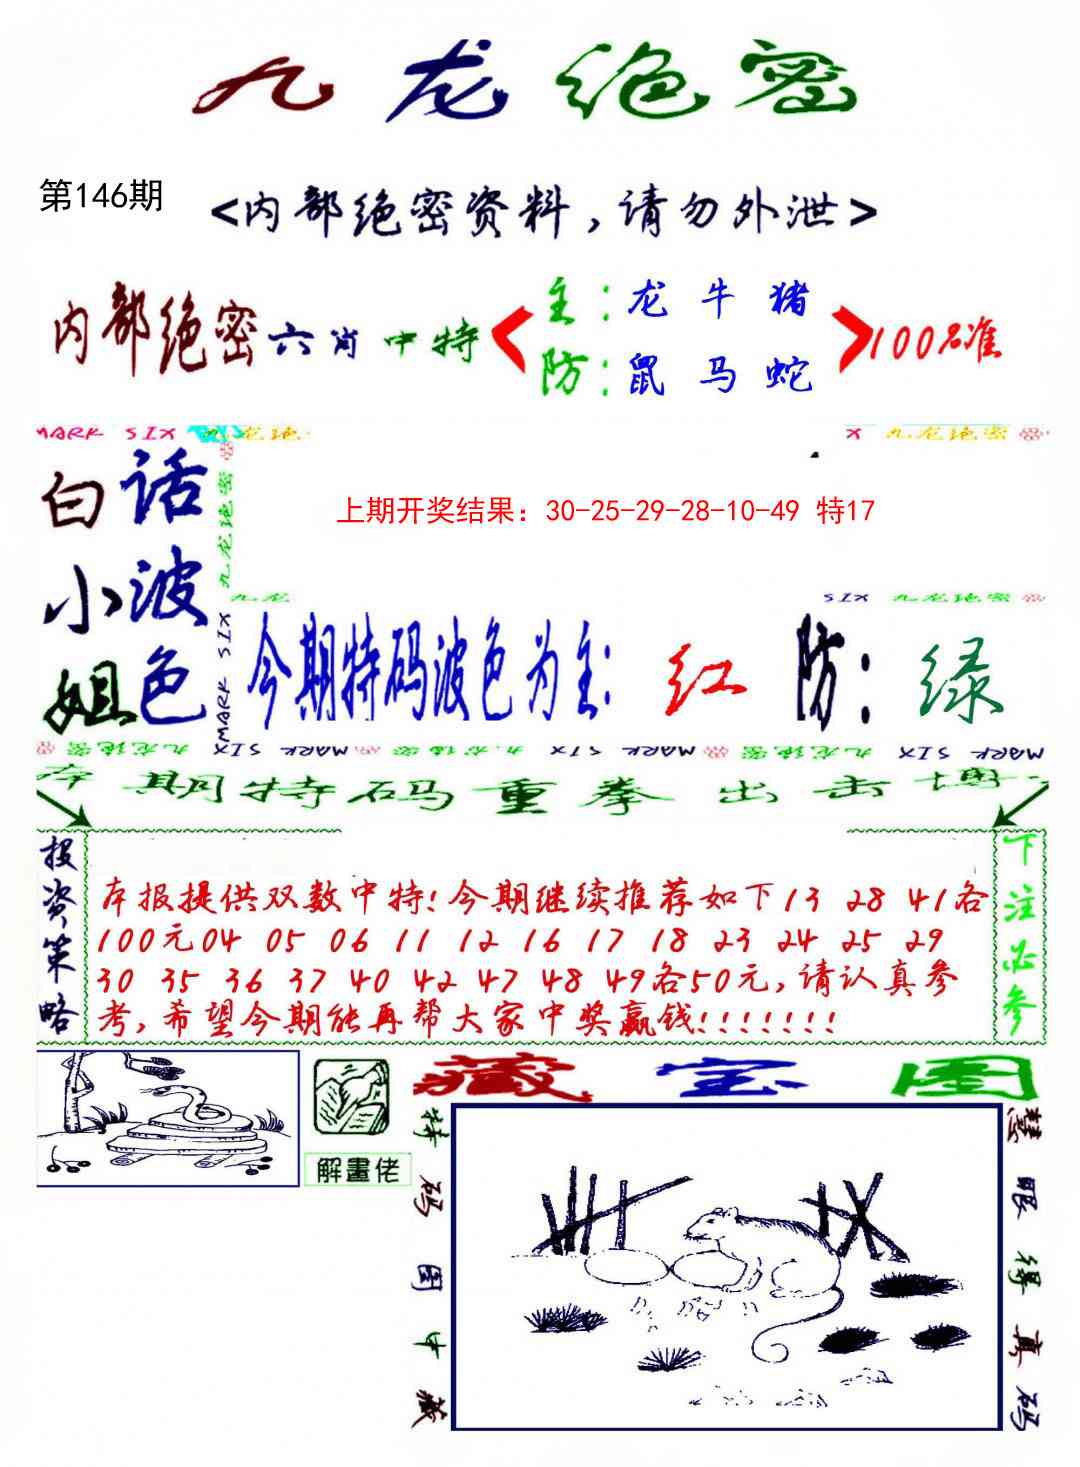 九龙绝密
第146期
<内部绝密资料,请勿外泄>
内部绝密六肖中特
主:龙 牛 猪
防:鼠 马 蛇
100%准
MARK SIX 九龙绝
X 九龙绝密
九龙绝密
白小姐
话波色
上期开奖结果：30-25-29-28-10-49 特17
九龙
SIX 九龙绝密
MARK SIX
今期特码波色为主:红 防:绿
九龙绝密 MARK SIX 九龙绝密 MARK SIX 九龙绝密 MARK SIX
本期特码重拳出击博
投资策略
本报提供双数中特!今期继续推荐如下13 28 41各
100元04 05 06 11 12 16 17 18 23 24 25 29
30 35 36 37 40 42 47 48 49各50元,请认真参
考,希望今期能再帮大家中奖赢钱!!!!!!!
下注必参
解畫佬
藏宝图
特码图中藏
慧眼得真码